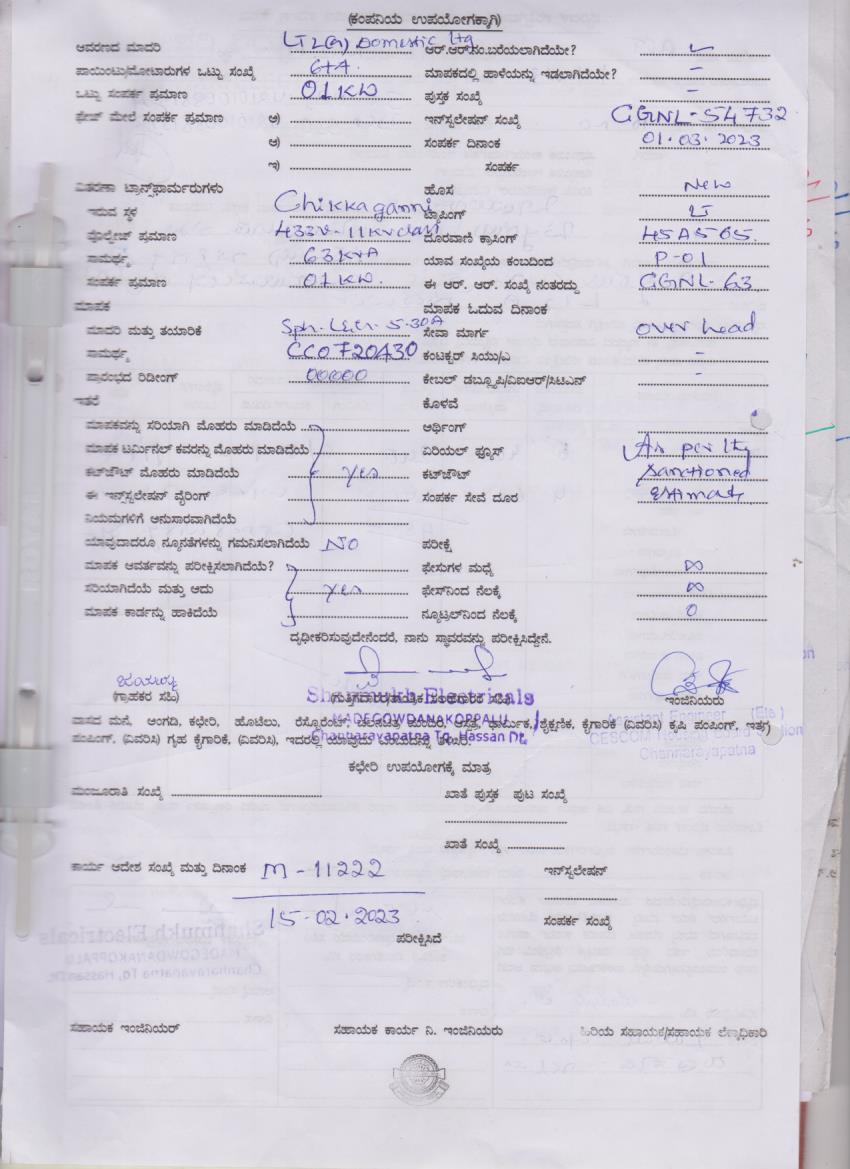 (ಕಂಪನಿಯ ಉಪಯೋಗಕ್ಕಾಗಿ)
ಆವರಣದ ಮಾದರಿ LT2(a) Domestic ltg ಆರ್.ಆರ್.ನಂ.ಬರೆಯಲಾಗಿದೆಯೇ?
ಪಾಯಿಂಟು/ಮೋಟಾರುಗಳ ಒಟ್ಟು ಸಂಖ್ಯೆ 6+A ಮಾಪಕದಲ್ಲಿ ಹಾಳೆಯನ್ನು ಇಡಲಾಗಿದೆಯೇ? –
ಒಟ್ಟು ಸಂಪರ್ಕ ಪ್ರಮಾಣ 01KW ಪುಸ್ತಕ ಸಂಖ್ಯೆ –
ಫೇಜ್ ಮೇಲೆ ಸಂಪರ್ಕ ಪ್ರಮಾಣ ಅ) ಇನ್‌ಸ್ಟಲೇಷನ್ ಸಂಖ್ಯೆ GGNL-54732
ಆ) ಸಂಪರ್ಕ ದಿನಾಂಕ 01.03.2023
ಇ) ಸಂಪರ್ಕ
ವಿತರಣಾ ಟ್ರಾನ್ಸ್‌ಫಾರ್ಮರುಗಳು ಹೊಸ New
ಇರುವ ಸ್ಥಳ Chikkaganni ಟ್ಯಾಪಿಂಗ್
ವೋಲ್ಟೇಜ್ ಪ್ರಮಾಣ 433V-11KV class ದೂರವಾಣಿ ಕ್ರಾಸಿಂಗ್
ಸಾಮರ್ಥ್ಯ 63KVA ಯಾವ ಸಂಖ್ಯೆಯ ಕಂಬದಿಂದ P-01
ಸಂಪರ್ಕ ಪ್ರಮಾಣ 01KW. ಈ ಆರ್. ಆರ್. ಸಂಖ್ಯೆ ನಂತರದ್ದು GGNL-63
ಮಾಪಕ ಮಾಪಕ ಓದುವ ದಿನಾಂಕ
ಮಾದರಿ ಮತ್ತು ತಯಾರಿಕೆ 5-30A ಸೇವಾ ಮಾರ್ಗ over head
ಸಾಮರ್ಥ್ಯ CC0720430 ಕಂಟಕ್ಟರ್ ಸಿಯು/ಎ –
ಪ್ರಾರಂಭದ ರಿಡೀಂಗ್ 00000 ಕೇಬಲ್ ಡಬ್ಲ್ಯೂಪಿ/ವಿಐಆರ್/ಸಿಟಿಎನ್ –
ಇತರೆ ಕೊಳವೆ
ಮಾಪಕವನ್ನು ಸರಿಯಾಗಿ ಮೊಹರು ಮಾಡಿದೆಯೆ ಅರ್ಥಿಂಗ್
ಮಾಪಕ ಟರ್ಮಿನಲ್ ಕವರನ್ನು ಮೊಹರು ಮಾಡಿದೆಯೆ ಏರಿಯಲ್ ಫ್ಯೂಸ್ As per ltg
ಕಟ್‌ಔಟ್ ಮೊಹರು ಮಾಡಿದೆಯೆ yes ಕಟ್‌ಔಟ್ sanctioned
ಈ ಇನ್‌ಸ್ಟಲೇಷನ್ ವೈರಿಂಗ್ ಸಂಪರ್ಕ ಸೇವೆ ದೂರ estimate
ನಿಯಮಗಳಿಗೆ ಅನುಸಾರವಾಗಿದೆಯೆ
ಯಾವುದಾದರೂ ನ್ಯೂನತೆಗಳನ್ನು ಗಮನಿಸಲಾಗಿದೆಯೆ NO ಪರೀಕ್ಷೆ
ಮಾಪಕ ಆವರ್ತವನ್ನು ಪರೀಕ್ಷಿಸಲಾಗಿದೆಯೆ? ಫೇಸುಗಳ ಮಧ್ಯೆ ∞
ಸರಿಯಾಗಿದೆಯೆ ಮತ್ತು ಅದು yes ಫೇಸ್‌ನಿಂದ ನೆಲಕ್ಕೆ ∞
ಮಾಪಕ ಕಾರ್ಡನ್ನು ಹಾಕಿದೆಯೆ ನ್ಯೂಟ್ರಲ್‌ನಿಂದ ನೆಲಕ್ಕೆ 0
ದೃಢೀಕರಿಸುವುದೇನೆಂದರೆ, ನಾನು ಸ್ಥಾವರವನ್ನು ಪರೀಕ್ಷಿಸಿದ್ದೇನೆ.
(ಗ್ರಾಹಕರ ಸಹಿ) ಇಂಜಿನಿಯರು
Shanmukh Electricals
MADEGOWDANAKOPPALU
Channarayapatna Tq, Hassan Dt.
Assistant Engineer (Ele)
Channarayapatna
ವಾಸದ ಮನೆ, ಅಂಗಡಿ, ಕಛೇರಿ, ಹೋಟೆಲು, ಶೈಕ್ಷಣಿಕ, ಕೈಗಾರಿಕೆ (ವಿವರಿಸಿ) ಕೃಷಿ ಪಂಪಿಂಗ್, ಇತ್ತರ
ಪಂಪಿಂಗ್, (ವಿವರಿಸಿ) ಗೃಹ ಕೈಗಾರಿಕೆ, (ವಿವರಿಸಿ), ಇದರಲ್ಲಿ ಯಾವುದು
ಕಛೇರಿ ಉಪಯೋಗಕ್ಕೆ ಮಾತ್ರ
ಮಂಜೂರಾತಿ ಸಂಖ್ಯೆ ಖಾತೆ ಪುಸ್ತಕ ಪುಟ ಸಂಖ್ಯೆ
ಖಾತೆ ಸಂಖ್ಯೆ
ಕಾರ್ಯ ಆದೇಶ ಸಂಖ್ಯೆ ಮತ್ತು ದಿನಾಂಕ M-11222 ಇನ್‌ಸ್ಟಲೇಷನ್
15-02.2023 ಸಂಪರ್ಕ ಸಂಖ್ಯೆ
ಪರೀಕ್ಷಿಸಿದೆ
ಸಹಾಯಕ ಇಂಜಿನಿಯರ್ ಸಹಾಯಕ ಕಾರ್ಯ ನಿ. ಇಂಜಿನಿಯರು ಹಿರಿಯ ಸಹಾಯಕ/ಸಹಾಯಕ ಲೆಕ್ಕಾಧಿಕಾರಿ